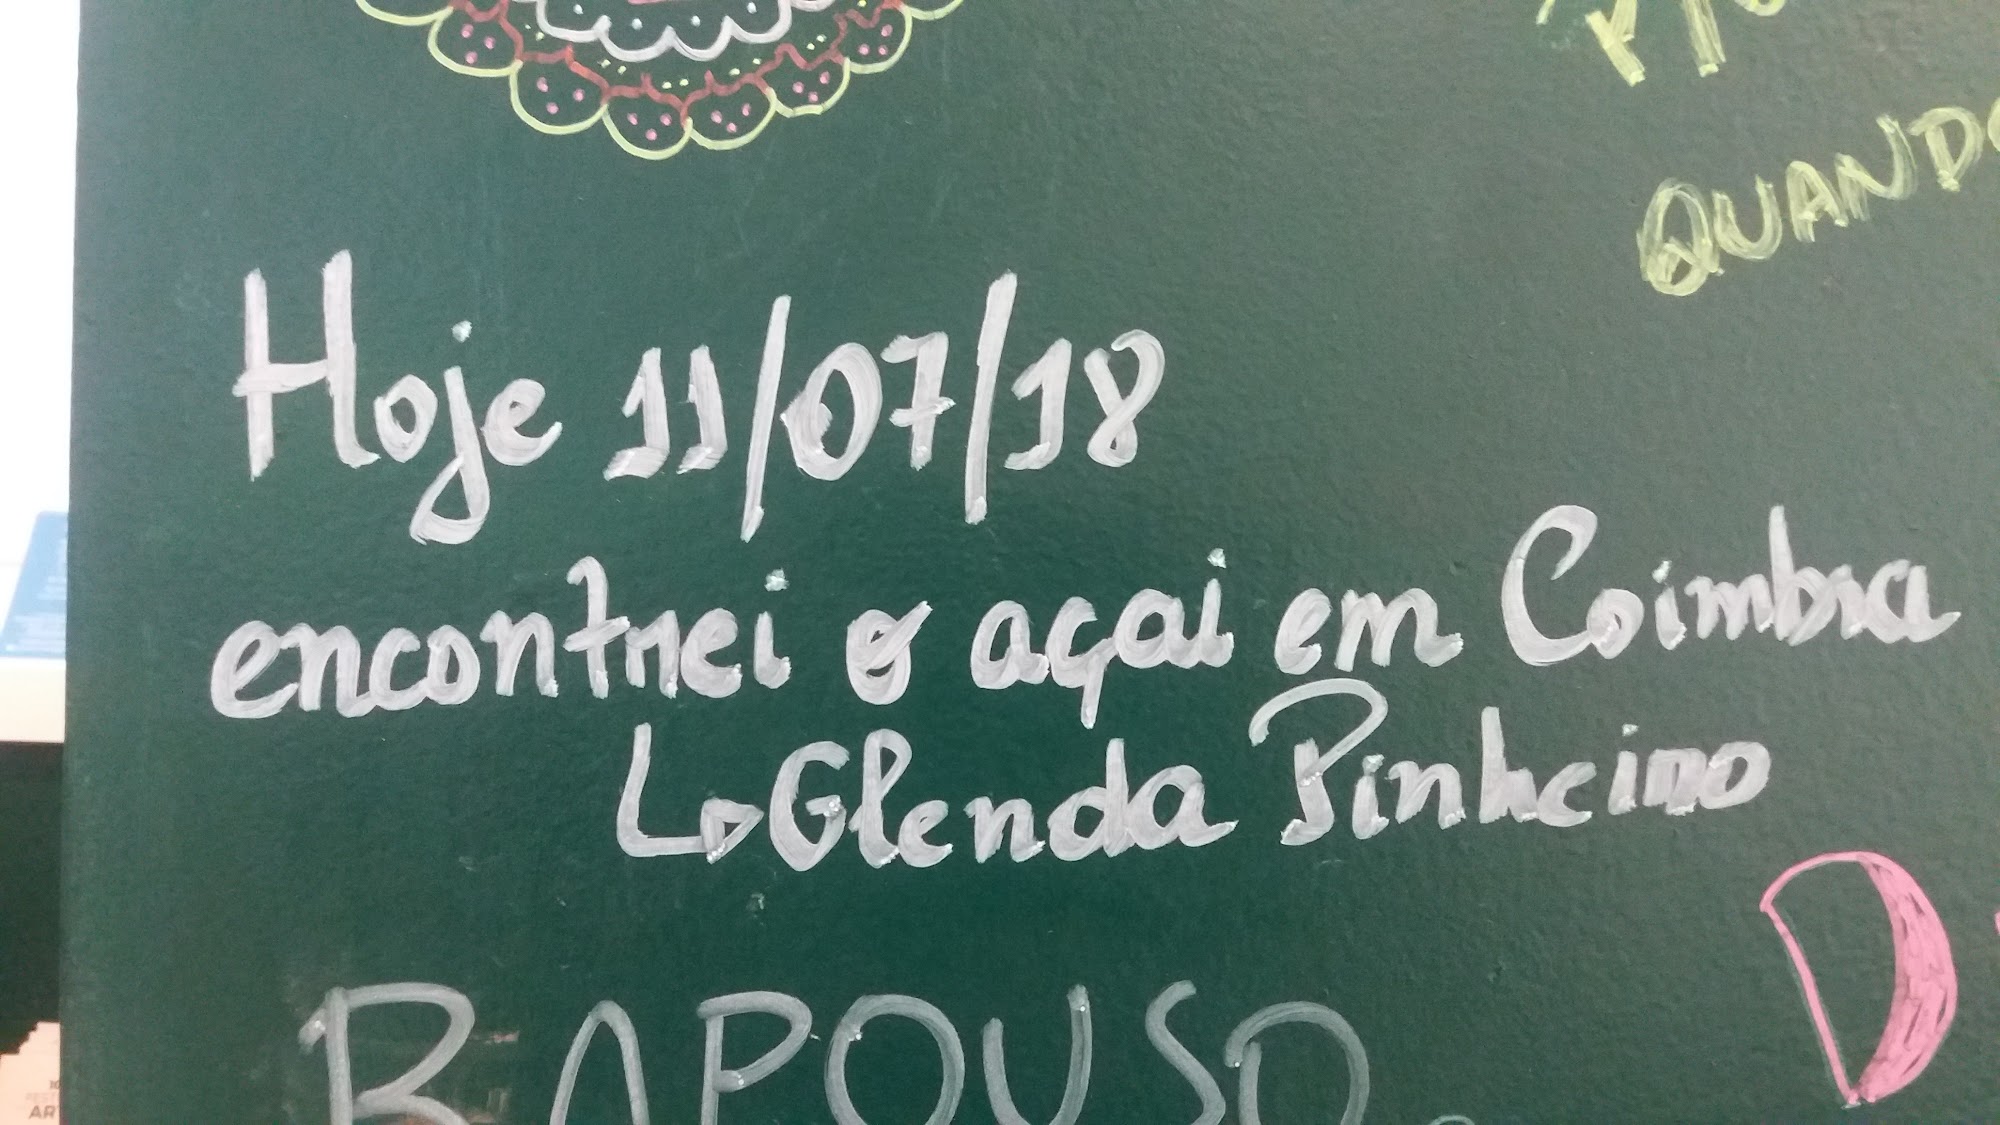 QUANDO
Hoje 11/07/18
encontrei o açai em Coimbra
↳Glenda Pinheiro
RAPOUSO
D
ART